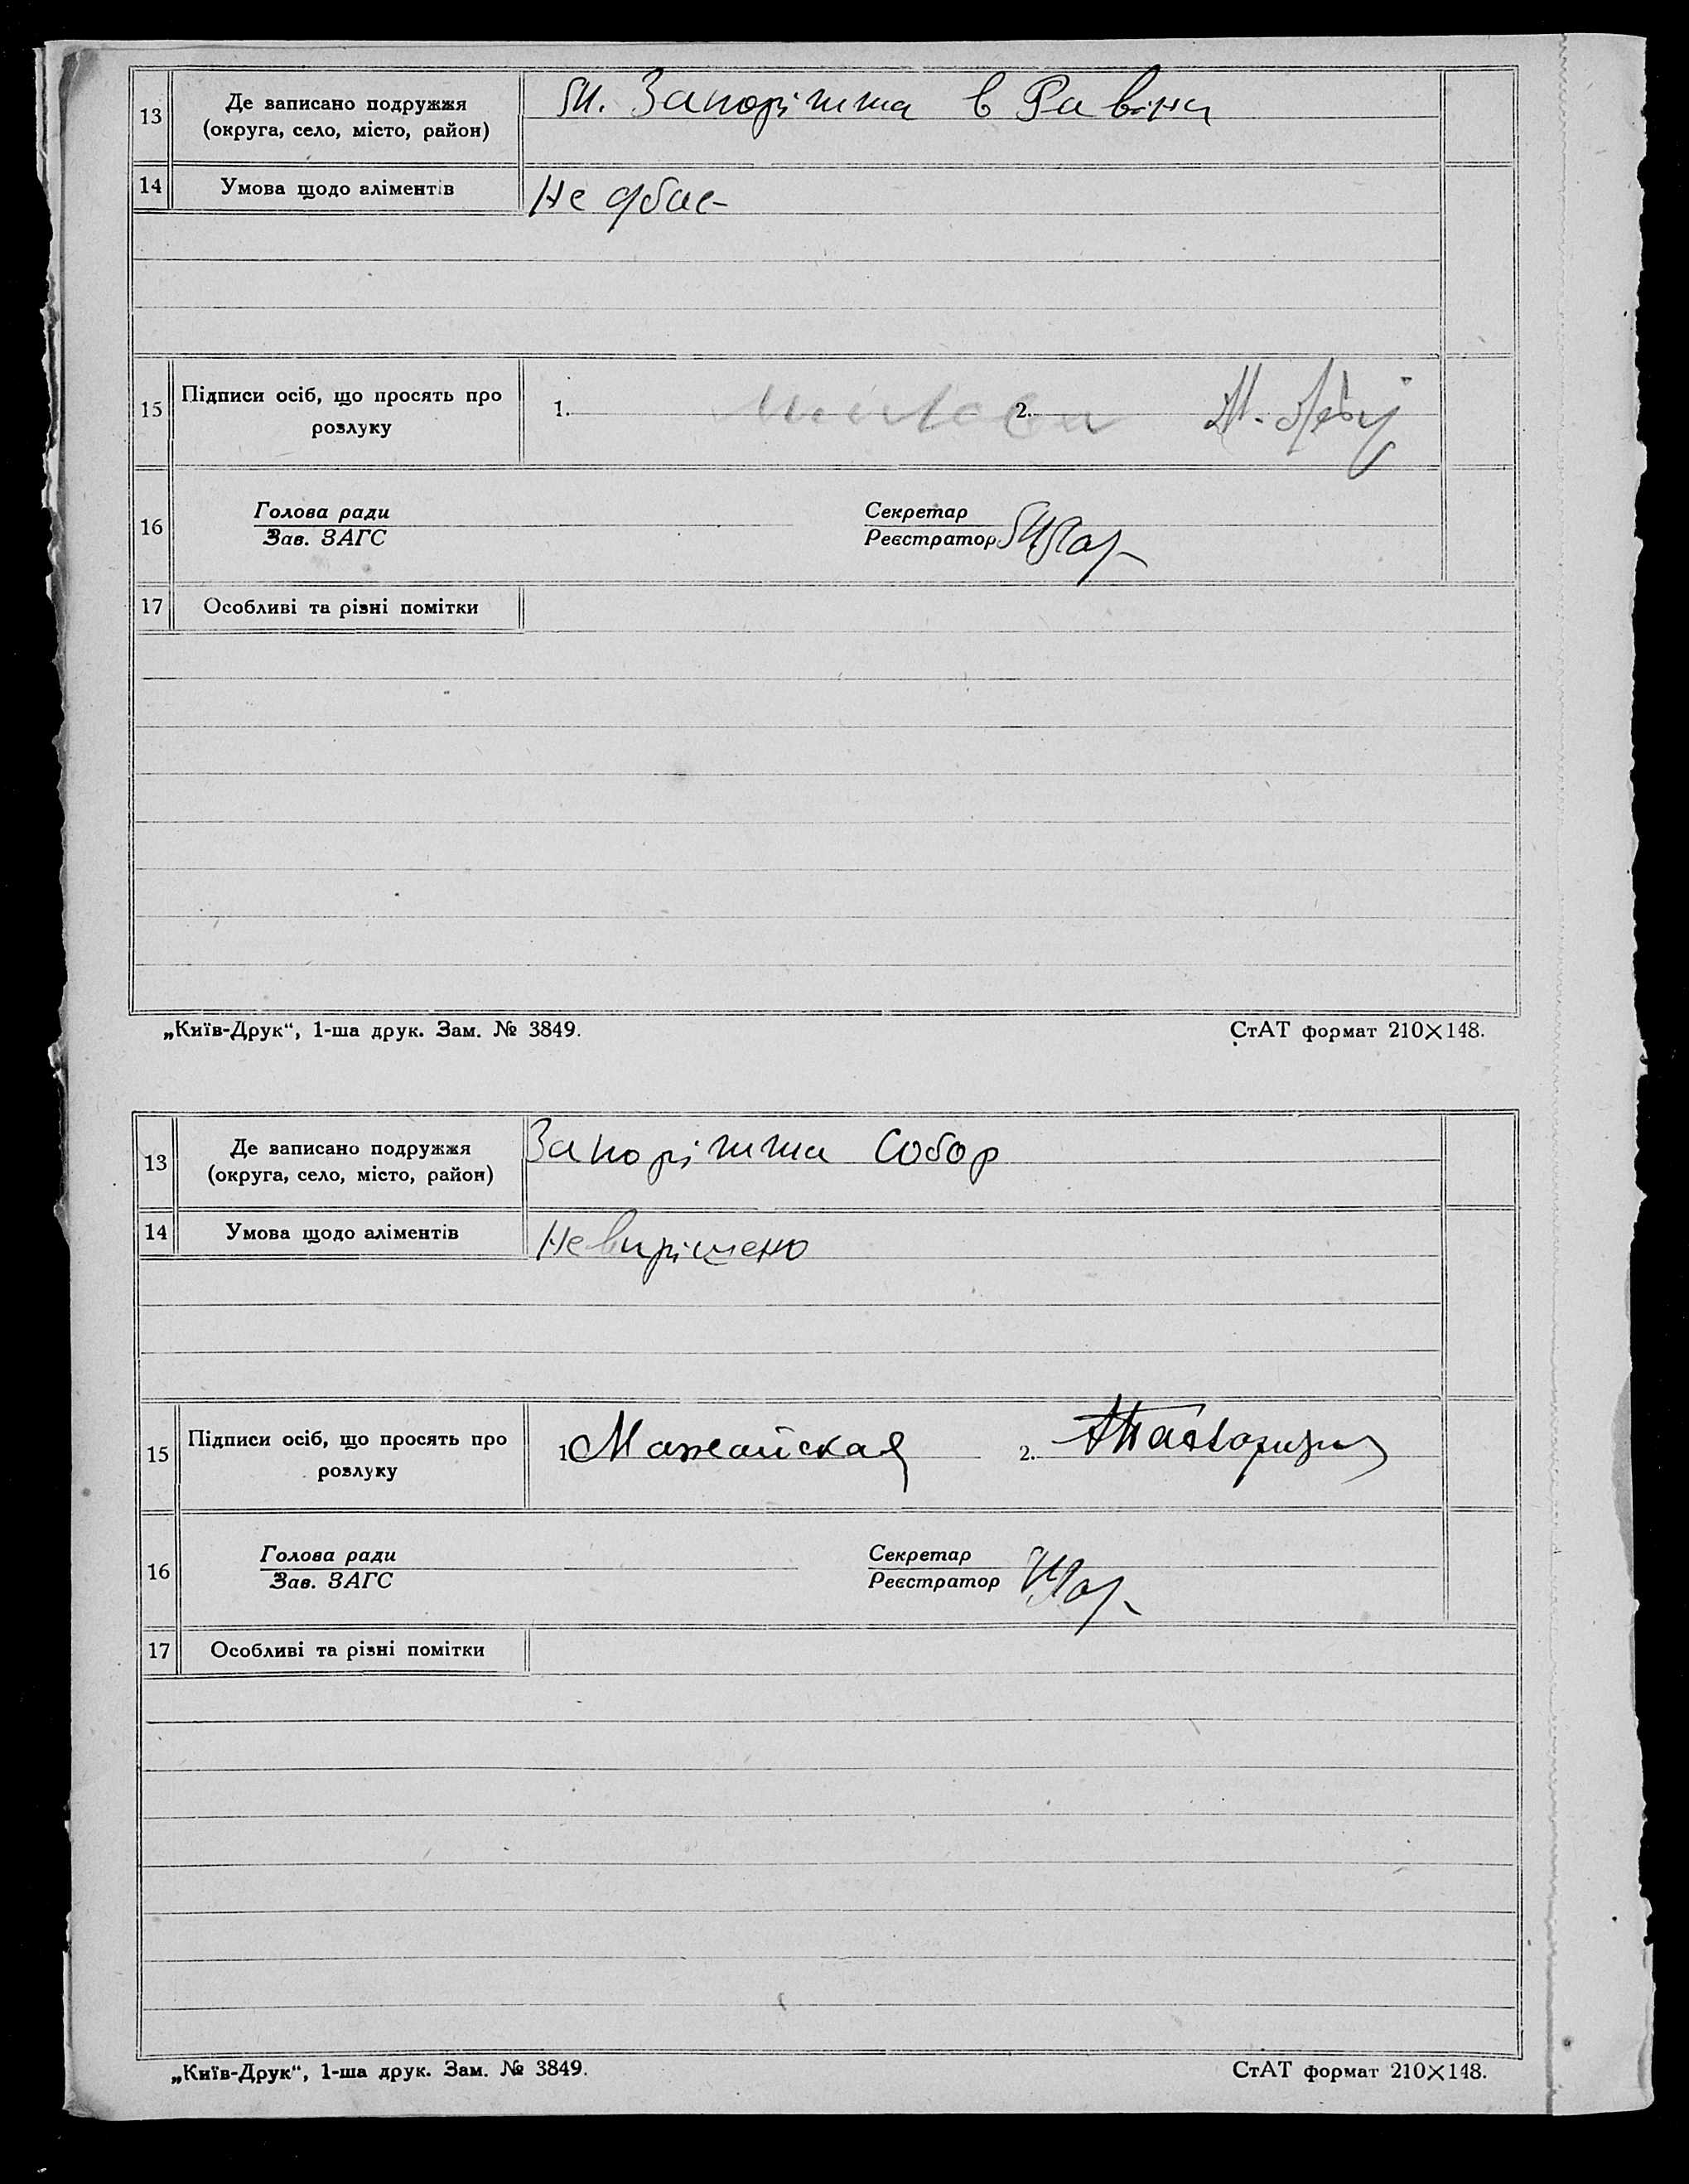 13 Де записано подружжя м. Запоріжжа в Равіна
(округа, село, місто, район)
14 Умова щодо аліментів Не дбає
15 Підписи осіб, що просять про 1. 2.
розлуку
16 Голова ради Секретар
Зав. ЗАГС Реєстратор
17 Особливі та різні помітки
„Київ-Друк“, 1-ша друк. Зам. № 3849. СтАТ формат 210×148.
13 Де записано подружжя Запоріжжа Собор
(округа, село, місто, район)
14 Умова щодо аліментів Не вирішено
15 Підписи осіб, що просять про 1. Можайская 2.
розлуку
16 Голова ради Секретар
Зав. ЗАГС Реєстратор
17 Особливі та різні помітки
„Київ-Друк“, 1-ша друк. Зам. № 3849. СтАТ формат 210×148.